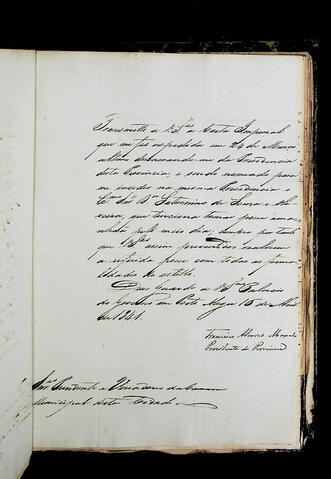 Transmitto a V.Sas a Carta Imperial
que me foi expedida em 24 de Março
ultimo exonerando-me da Presidencia
desta Provincia e sendo nomeado para
me succeder na mesma Presidencia o
Exmo Snr Dr Saturnino de Souza e Oli-
veira, que tenciona tomar posse ama-
nhãa pelo meio dia, cumpre por tanto
que V.Sas assim prevenidos realisem
a referida posse com todas as forma-
lidades do estillo.
Deos Guarde a V.Sas Palacio
do Governo em Porto Alegre 16 de Abril
de 1841.
Francisco Alvares Machado
Presidente da Provincia
Snrs Presidente e Vereadores da Camara
Municipal desta Cidade